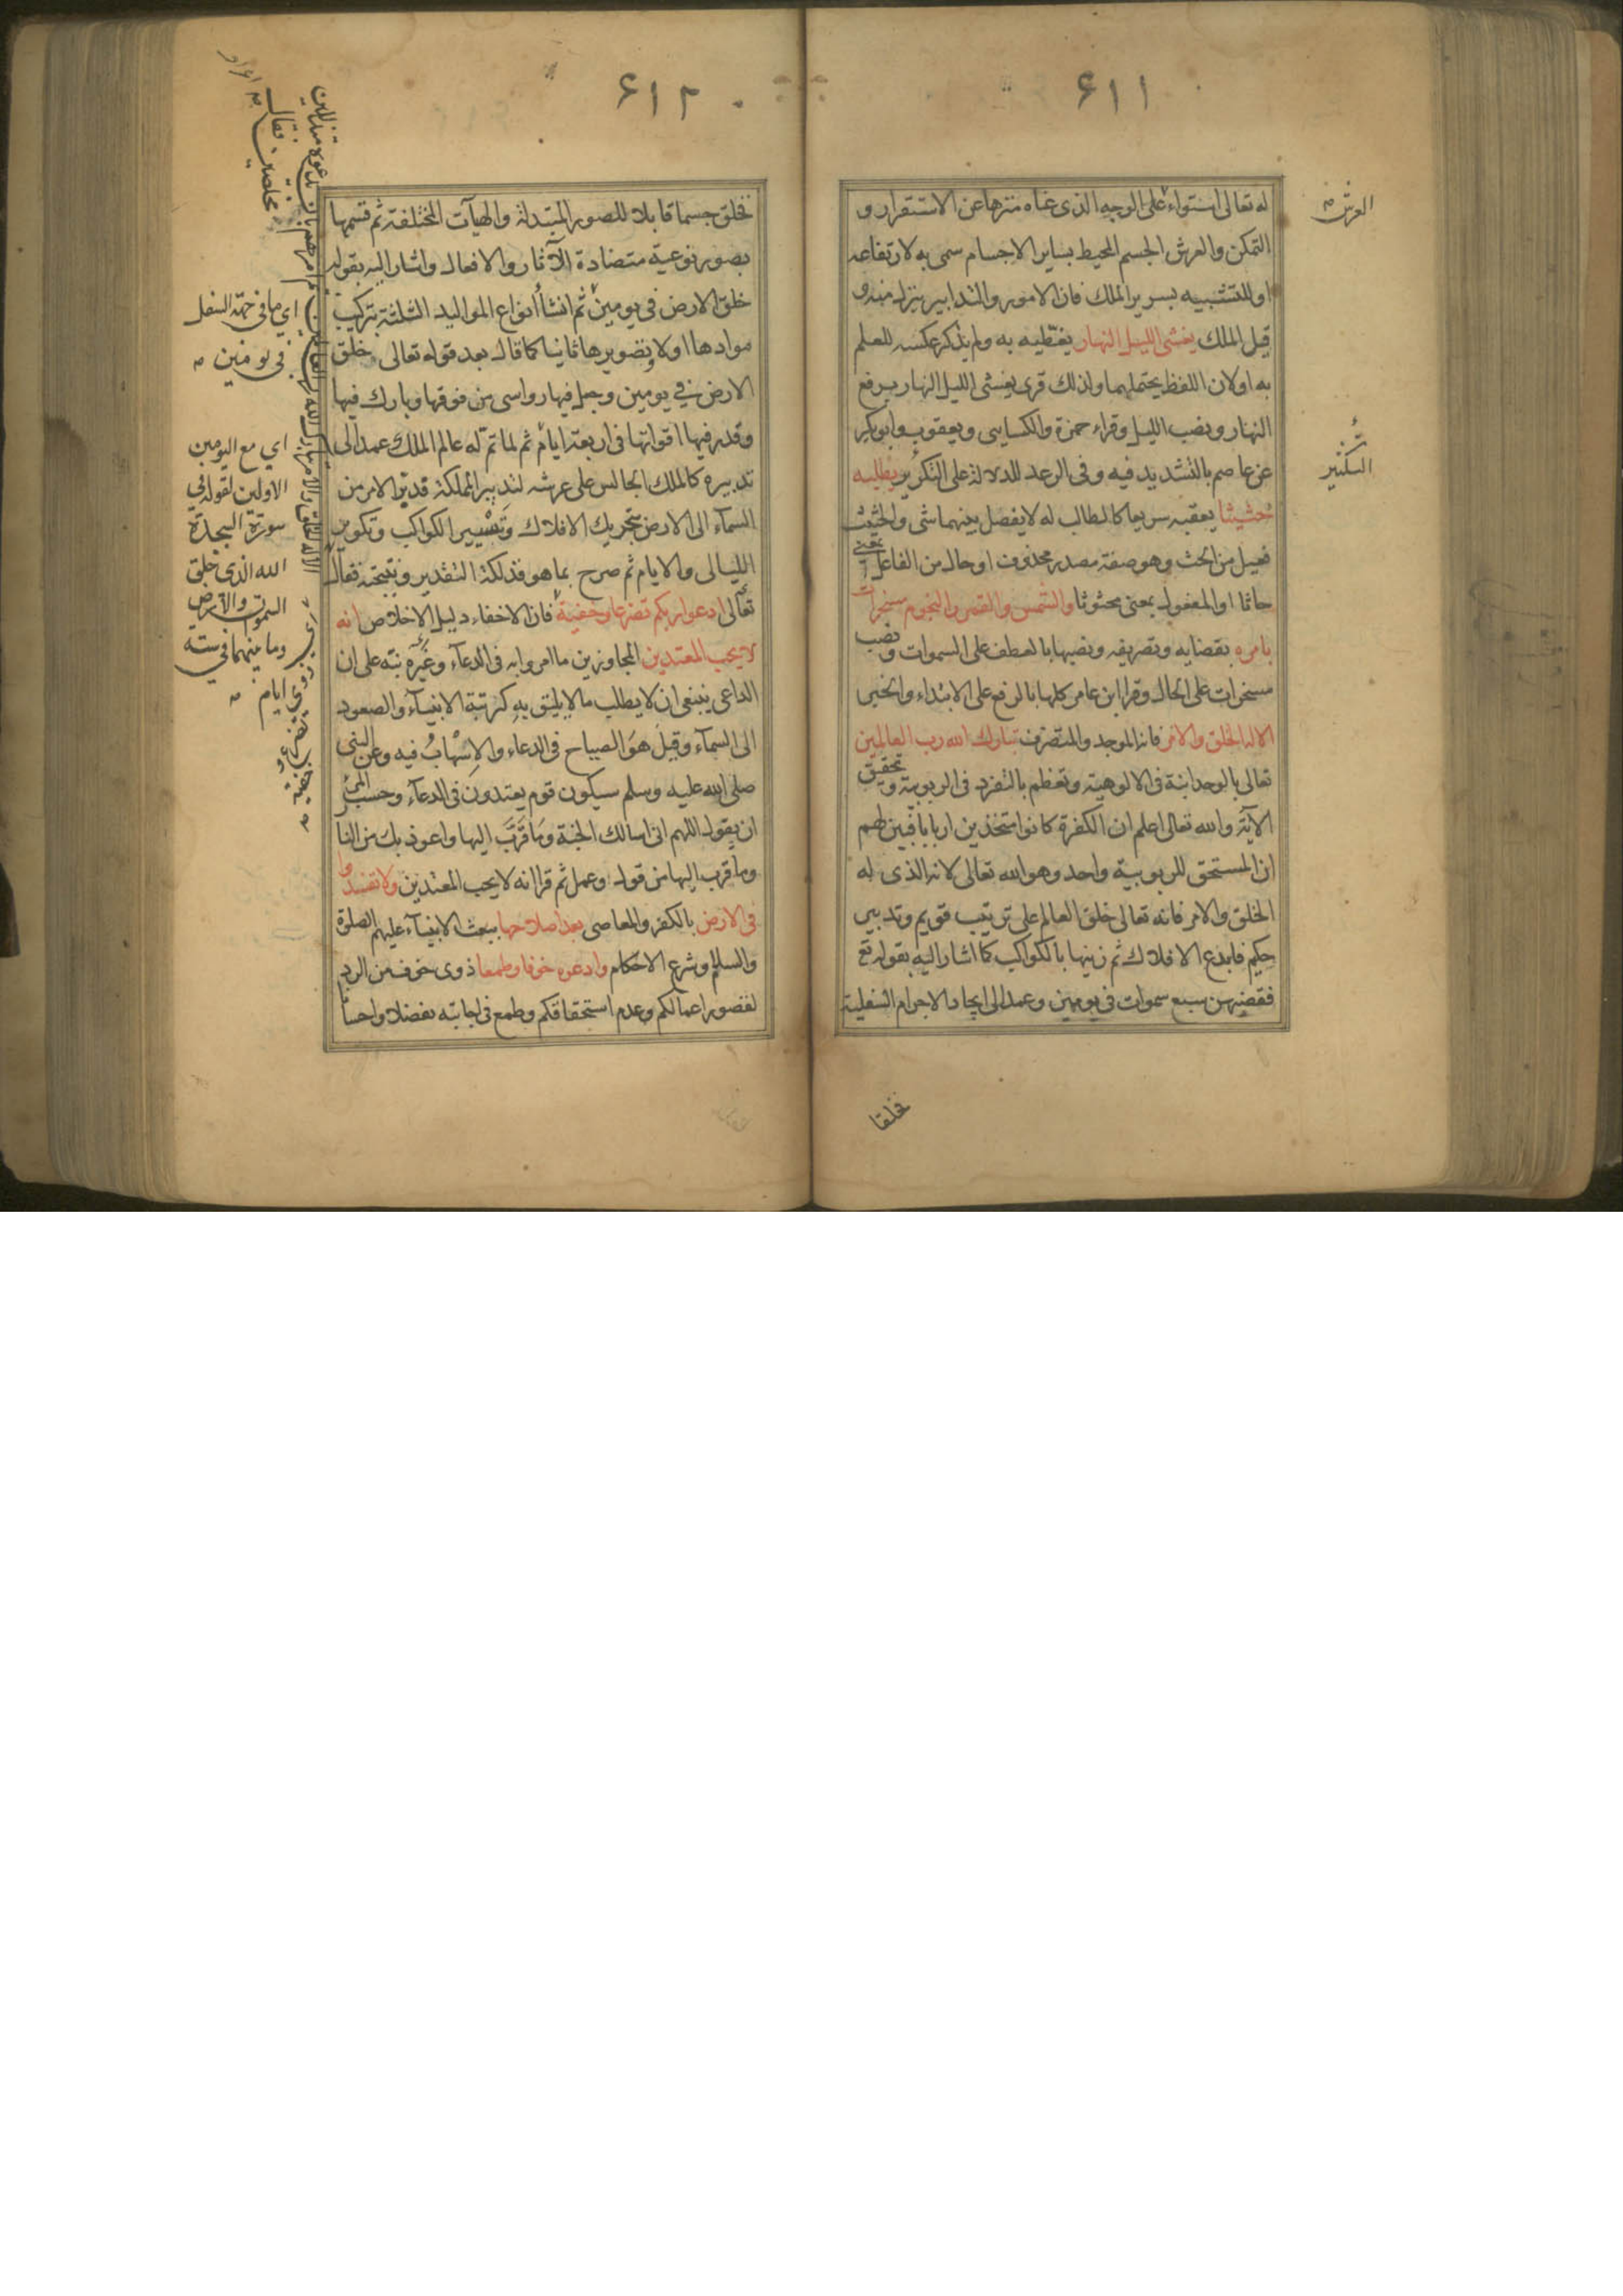 ۶۱۱
له تعالى استواء على الوجه الذى عناه منزها عن الاستقرار و
التمكن والعرش الجسم المحيط بساير الاجسام سمى به لارتفاعه
او للتشبيه بسرير الملك فان الامور والتدابير ينزل منه و
قيل الملك يغشى الليل النهار يغطيه به ولم يذكر عكسه للعلم
به او لان اللفظ يحتملهما ولذلك قرى يغشى الليل النهار برفع
النهار ونصب الليل وقراء حمزة والكسايى ويعقوب وابوبكر
عن عاصم بالتشديد فيه وفى الرعد للدلالة على التكرير يطلبه
حثيثا يعقبه سريعا كالطالب له لا يفصل بينهما شى والحثيث
فعيل من الحث وهو صفة مصدر محذوف او حال من الفاعل بمعنى
حاثا او المفعول بمعنى محثوثا والشمس والقمر والنجوم مسخرات
بامره بقضايه وتصريفه ونصبها بالعطف على السموات ونصب
مسخرات على الحال وقرا ابن عامر كلها بالرفع على الابتداء والخبر
الا له الخلق والامر فانه الموجد والمتصرف تبارك الله رب العالمين
تعالى بالوحدانية فى الالوهية وتعظم بالتفرد فى الربوبية وتحقيق
الآية والله تعالى اعلم ان الكفرة كانوا متخذين اربابا فبين لهم
ان المستحق للربوبية واحد وهو الله تعالى لانه الذى له
الخلق والامر فانه تعالى خلق العالم على ترتيب قويم وتدبير
حكيم فابدع الافلاك ثم زينها بالكواكب كما اشار اليه بقوله تع
فقضيهن سبع سموات فى يومين وعمد الى ايجاد الاجرام السفلية
فخلقا
العرش
التكثير
۶۱۲
فخلق جسما قابلا للصور المتبدلة والهيآت المختلفة ثم قسمها
بصور نوعية متضادة الآثار والافعال واشار اليه بقوله
خلق الارض فى يومين ثم انشأ انواع المواليد الثلثة بتركيب
موادها اولا وتصويرها ثانيا كما قال بعد قوله تعالى خلق
الارض فى يومين وجعل فيها رواسى من فوقها وبارك فيها
وقدر فيها اقواتها فى اربعة ايام ثم لما تم له عالم الملك عمد الى
تدبيره كالملك الجالس على عرشه لتدبير المملكة فدبر الامر من
السمآء الى الارض بتحريك الافلاك وتسيير الكواكب وتكوير
الليالى والايام ثم صرح بما هو فذلكة التقدير ونتيجته فقال
تعالى ادعوا ربكم تضرعا وخفية فان الاخفاء دليل الاخلاص انه
لا يحب المعتدين المجاوزين ما امروا به فى الدعآء وغيره نبه على ان
الداعى ينبغى ان لا يطلب ما لا يليق به كرتبة الانبيآء والصعود
الى السمآء وقيل هو الصياح فى الدعاء والاسهاب فيه وعن النبى
صلى الله عليه وسلم سيكون قوم يعتدون فى الدعآء وحسب المرء
ان يقول اللهم انى اسالك الجنة وما قرب اليها واعوذ بك من النا
وما قرب اليها من قول وعمل ثم قرا انه لا يحب المعتدين ولا تفسدوا
فى الارض بالكفر والمعاصى بعد اصلاحها ببعث الانبيآء عليهم الصلوة
والسلام وشرع الاحكام وادعوه خوفا وطمعا ذوى خوف من الرد
لقصور اعمالكم وعدم استحقاقكم وطمع فى اجابته تفضلا واحسا
اي ما في جهة السفل
فى يومين
اي مع اليومين
الاولين لقوله في
سورة السجدة
الله الذى خلق
السموات والارض
وما بينهما في ستة
ايام